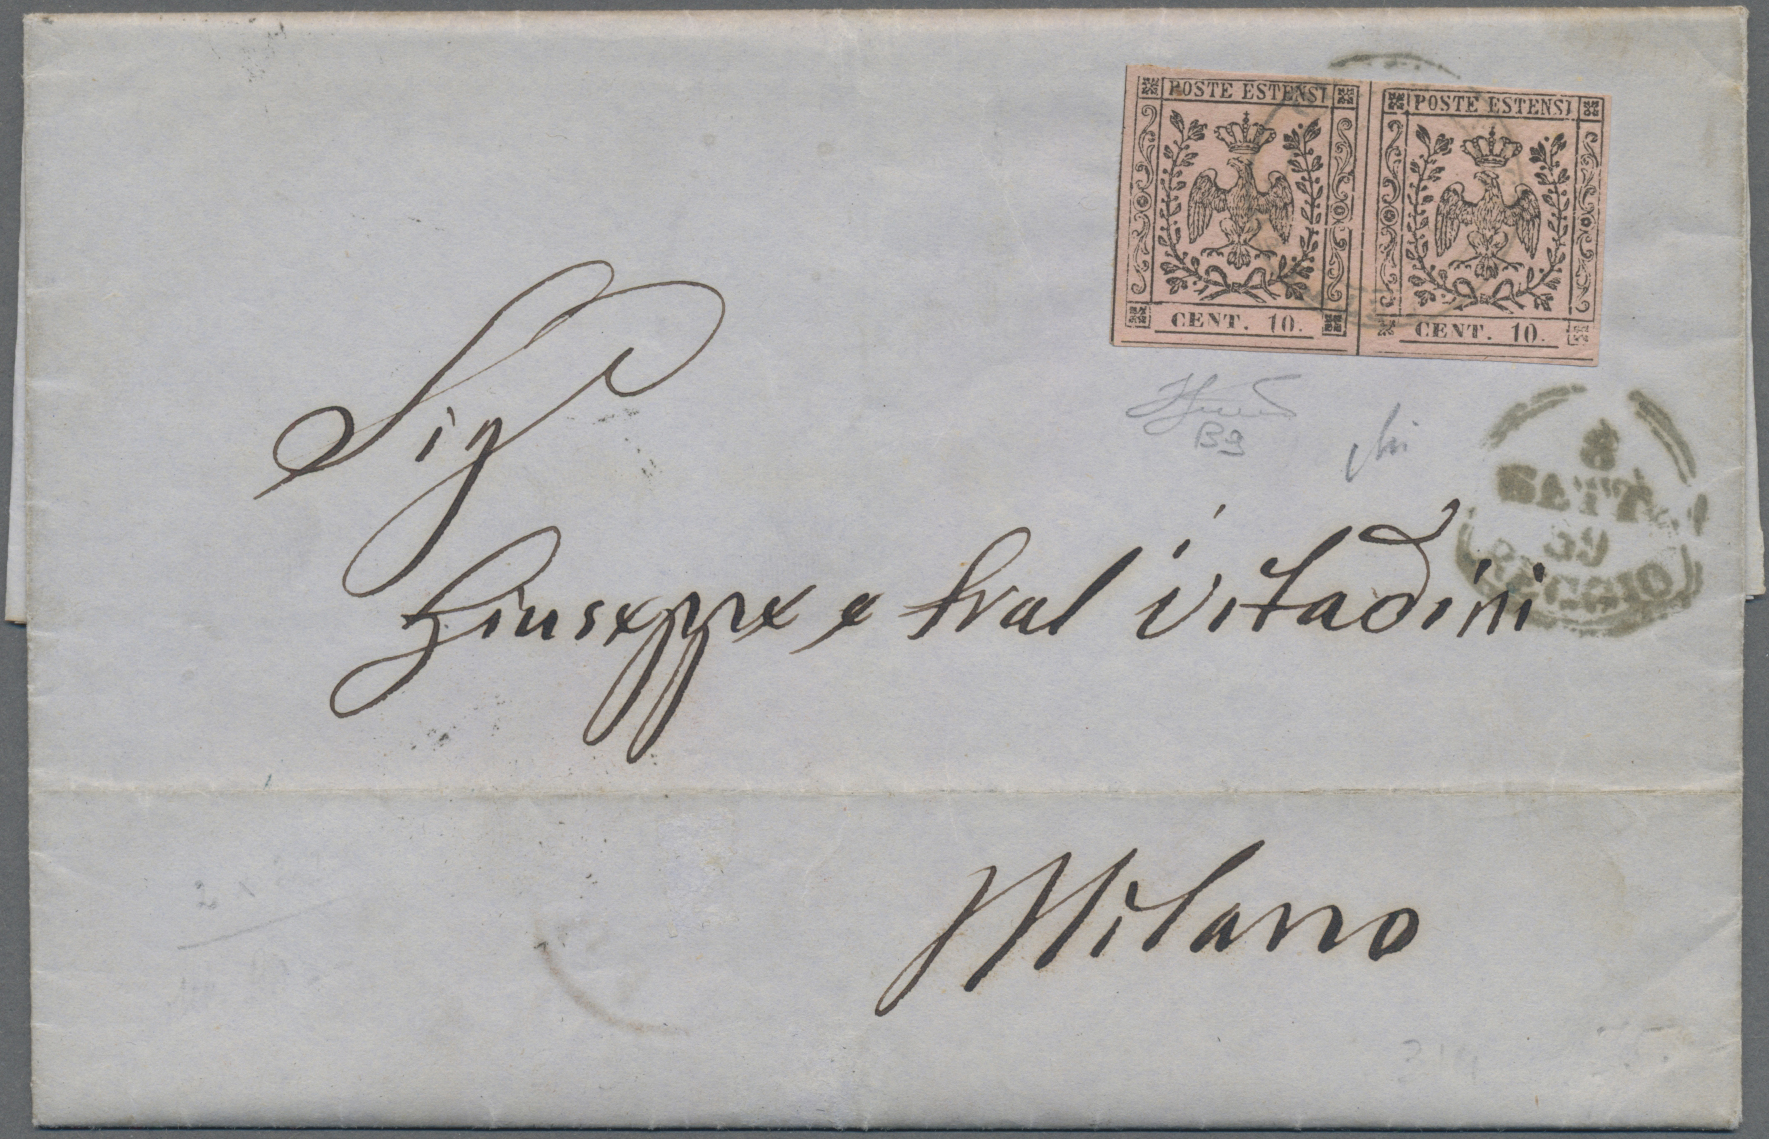 POSTE ESTENSI
CENT. 10.
POSTE ESTENSI
CENT. 10.
B9
Sig
Giuseppe e fral Vitadini
Milano